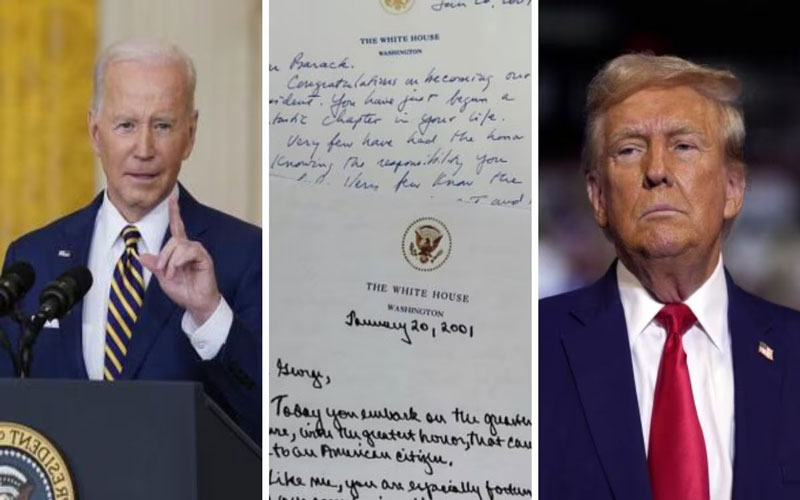 Jan 20, 200
THE WHITE HOUSE
WASHINGTON
Barack.
Congratulations on becoming our
sident. You have just begun a
tastic chapter in your life.
Very few have had the honor
Knowing the responsibility you
Very few know the
and
THE WHITE HOUSE
WASHINGTON
January 20, 2001
George,
Today you embark on the greatest
re, with the greatest honor, that can
to an American citizen.
Like me, you are especially fortun
PRESIDENT OF